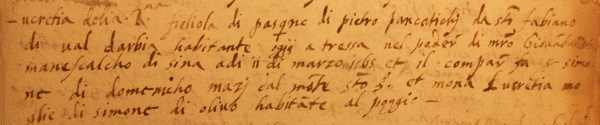 ucretia delia R.ma figliola di pasqne di pietro pancatichj da sto fabiano
di ual darbia habitante ogij a tressa nel poder di mro Giouabat
manescalcho di sina adi ii di marzo et il compar fu simo
ne di domenicho marj dal mote et mona Lucretia mo
glie di simone di oliuo habitate al poggio